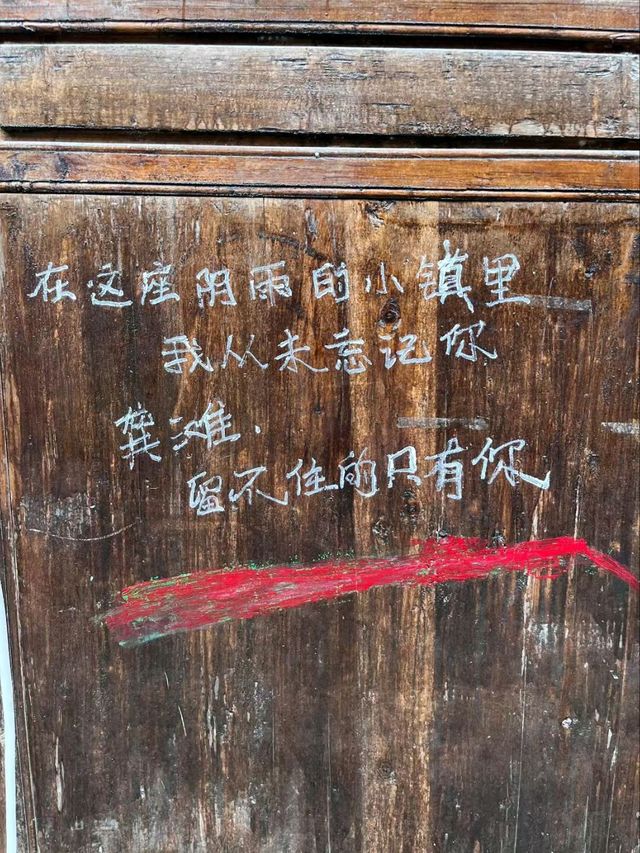 在这座阴雨的小镇里
我从未忘记你
龚滩.
留不住的只有你